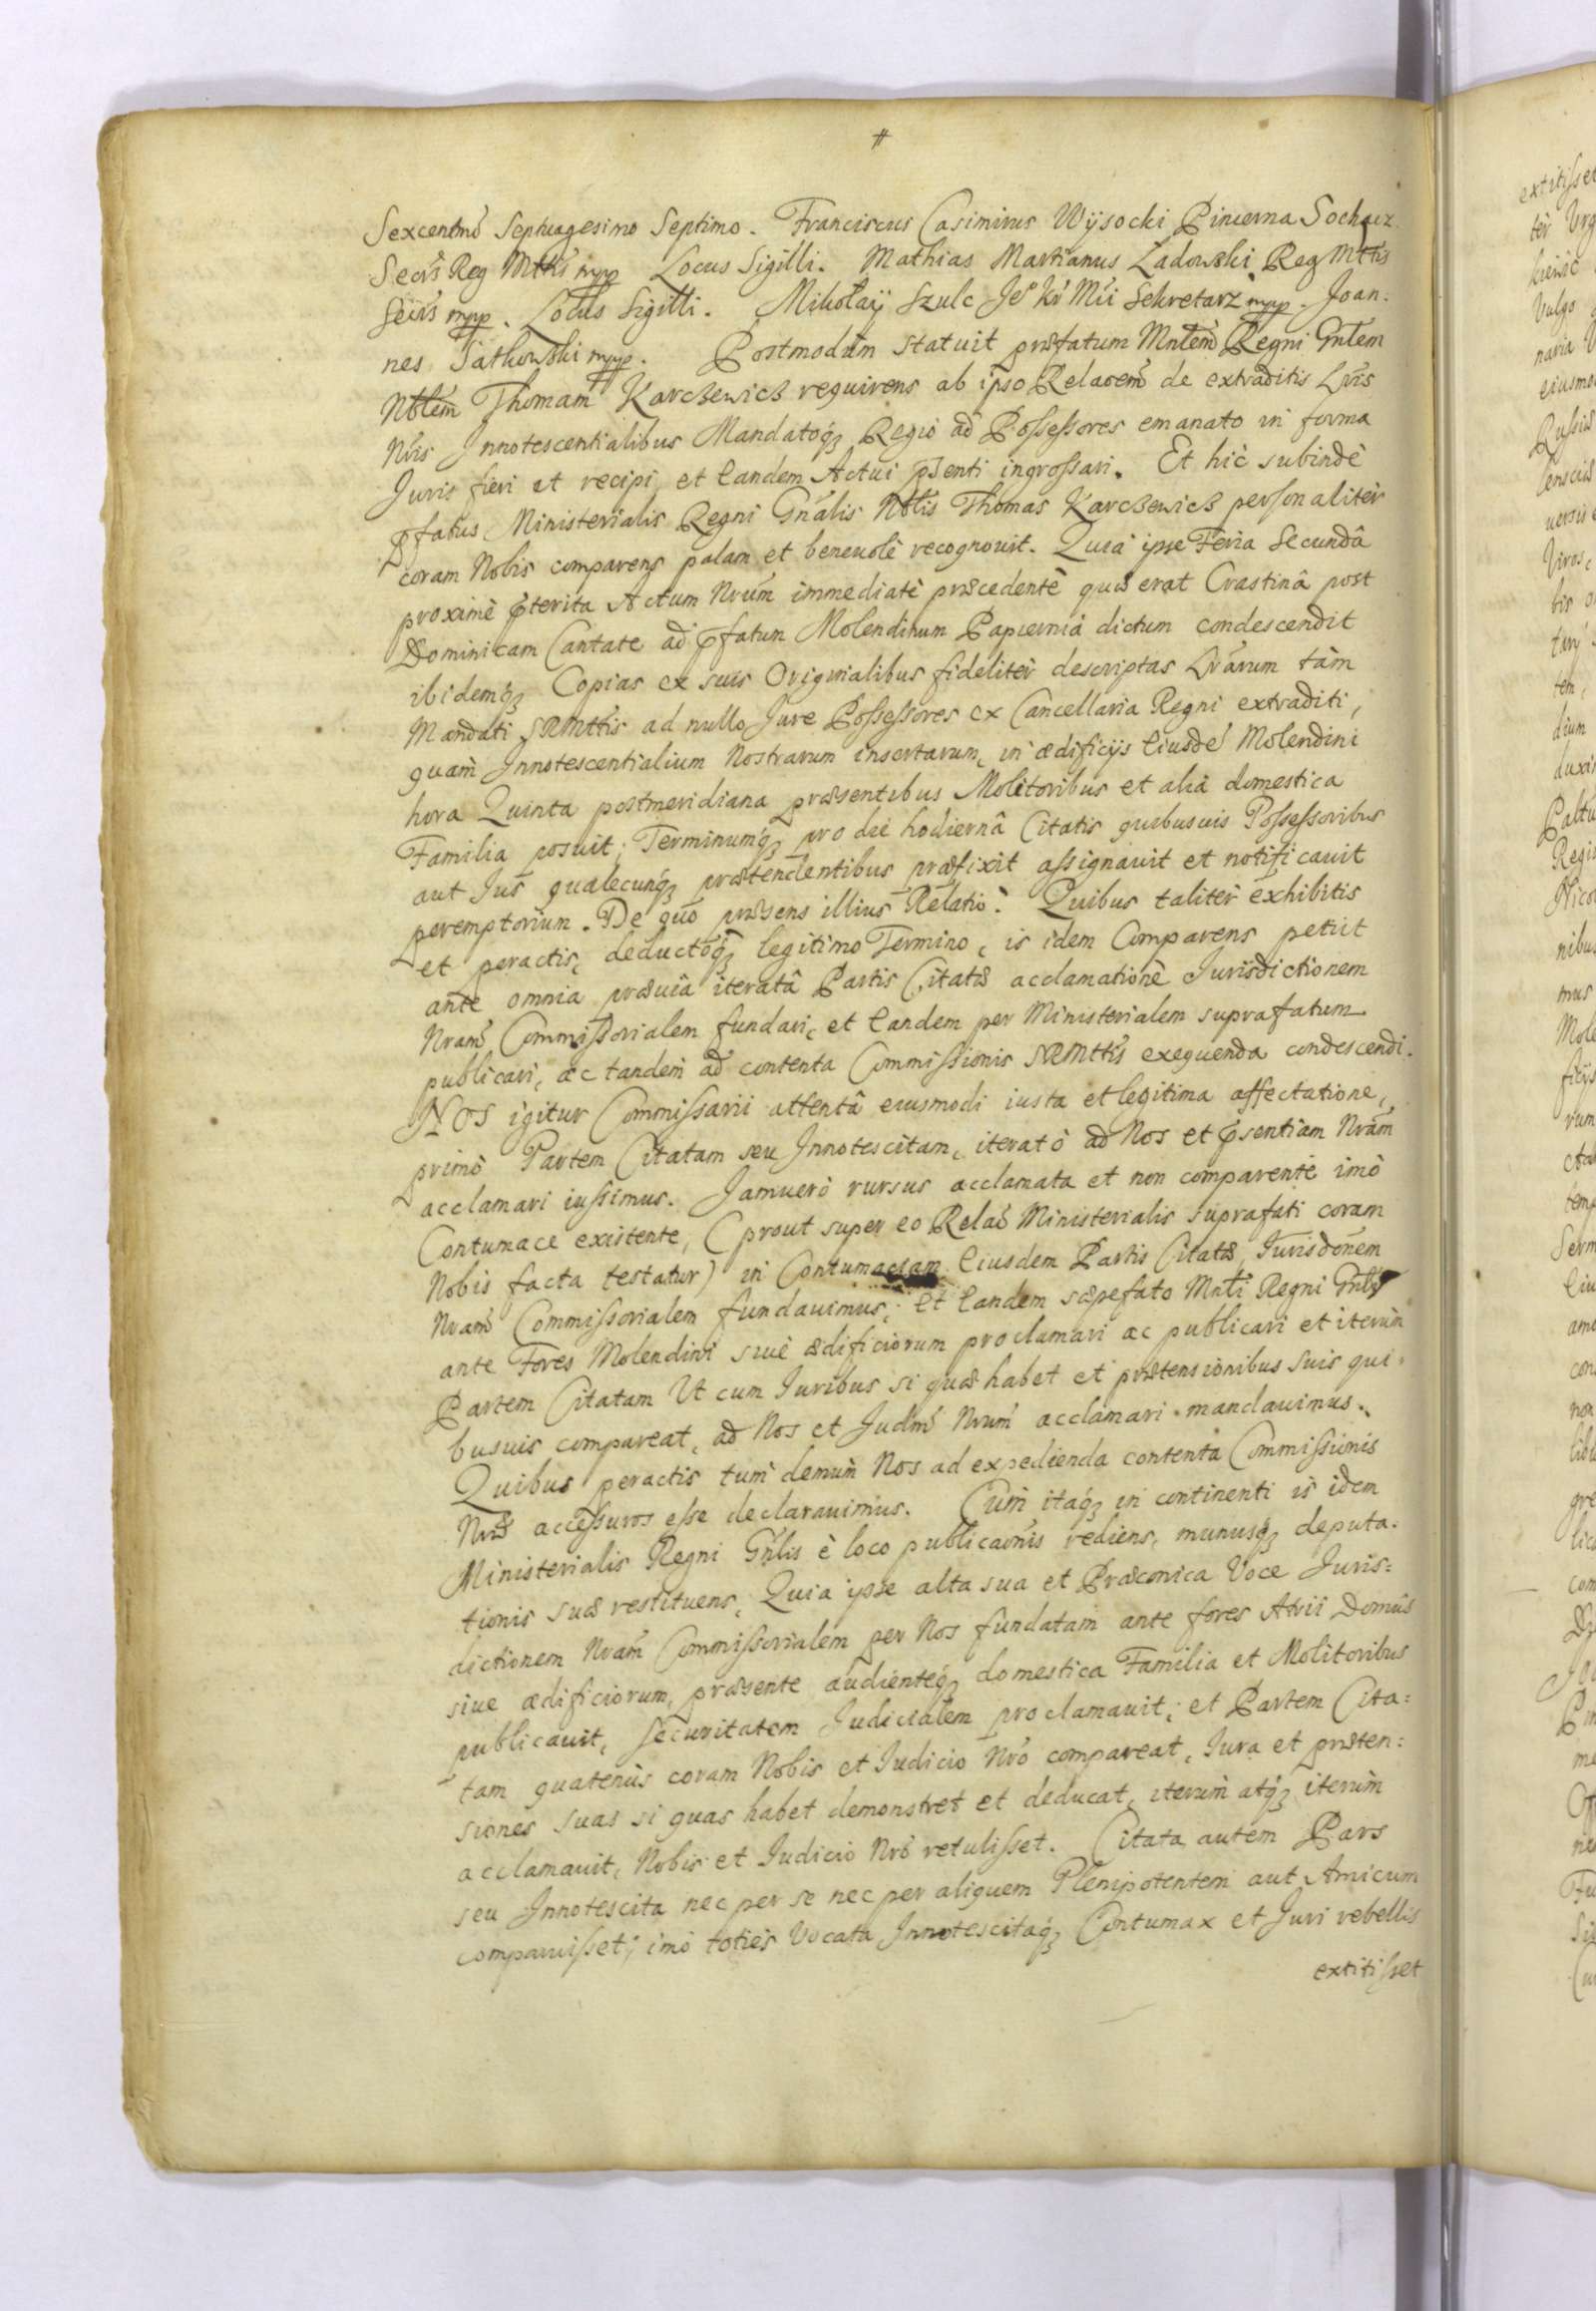 #
Sexcentmo Septuagesimo Septimo. Franciscus Casimirus Wÿsocki Pincerna Sochacz
Secrs Reg Mttis mpp Locus Sigilli. Mathias Martianus Ladowski Reg Mttis
Secrs mpp. Locus Sigilli. Mikołaÿ Szulc Je° Kr Mci Sekretarz mpp. Joan:
nes Jatkowski mpp. Postmodum statuit præfatum Mnlem Regni Gnlem
Nblem Thomam Karczewicz requirens ab ipso Relaoem de extraditis Lris
Nris Innotescentialibus Mandatoq; Regio ad Possessores emanato in forma
Juris fieri et recipi, et eandem Actui psenti ingrossari. Et hic subinde
pfatus Ministerialis Regni Gnalis Nblis Thomas Karczewicz personaliter
coram Nobis comparens palam et benevole recognovit. Quia ipse Feria Secunda
proxime pterita Actum Nrum immediate præcedente quæ erat Crastina post
Dominicam Cantate ad pfatum Molendinum Papiernia dictum condescendit
ibidemq; Copias ex suis Originalibus fideliter descriptas Lrarum tam
Mandati SRMttis ad nullo Jure Possessores ex Cancellaria Regni extraditi,
quam Innotescentialium Nostrarum insertarum, in ædificijs eiusde Molendini
hora Quinta postmeridiana præsentibus Molitoribus et alia domestica
Familia posuit; Terminumq; pro die hodierna Citatis quibusuis Possessoribus
aut Jus qualecunq; prætendentibus præfixit assignauit et notificauit
peremptorium. De quo præsens illius Relatio. Quibus taliter exhibitis
et peractis, deductoq; legitimo Termino, is idem Comparens petiit
ante omnia præuia iterata Partis Citatæ acclamatione Jurisdictionem
Nram Commissorialem fundari, et eandem per Ministerialem suprafatum
publicari, ac tandem ad contenta Commissionis SRMttis exequenda condescendi.
NOS igitur Commissarii attenta eiusmodi iusta et legitima affectatione,
primo Partem Citatam seu Innotescitam, iterato ad Nos et psentiam Nram
acclamari iussimus. Jamuero rursus acclamata et non comparente imo
Contumace existente, (prout super eo Relao Ministerialis suprafati coram
Nobis facta testatur) in Contumaciam eiusdem Partis Citatæ, Jurisdonem
Nram Commissorialem fundauimus, et eandem sæpefato Mnli Regni Gnli
ante Fores Molendini siue ædificiorum proclamari ac publicari et iterum
Partem Citatam Ut cum Juribus si quæ habet et prætensionibus suis qui
busuis compareat, ad Nos et Judm Nrum acclamari mandauimus.
Quibus peractis tum demum Nos ad expedienda contenta Commissionis
Nræ accessuros esse declarauimus. Cum itaq; in continenti is idem
Ministerialis Regni Gnlis è loco publicaonis rediens, munusq; deputa.
tionis suæ restituens, Quia ipse alta sua et Præconica Voce Juris:
dictionem Nram Commissorialem per Nos fundatam ante fores Atrii Domus
siue ædificiorum, præsente audienteq; domestica Familia et Molitoribus
publicauit, Securitatem Judicialem proclamauit; et Partem Cita:
tam quatenus coram Nobis et Judicio Nro compareat, Jura et præten:
siones suas si quas habet demonstret et deducat, iterum atq; iterum
acclamauit, Nobis et Judicio Nro retulisset. Citata autem Pars
seu Innotescita nec per se nec per aliquem Plenipotentem aut Amicum
comparuisset; imo toties Vocata Innotescitaq; Contumax et Juri rebellis
extitisset